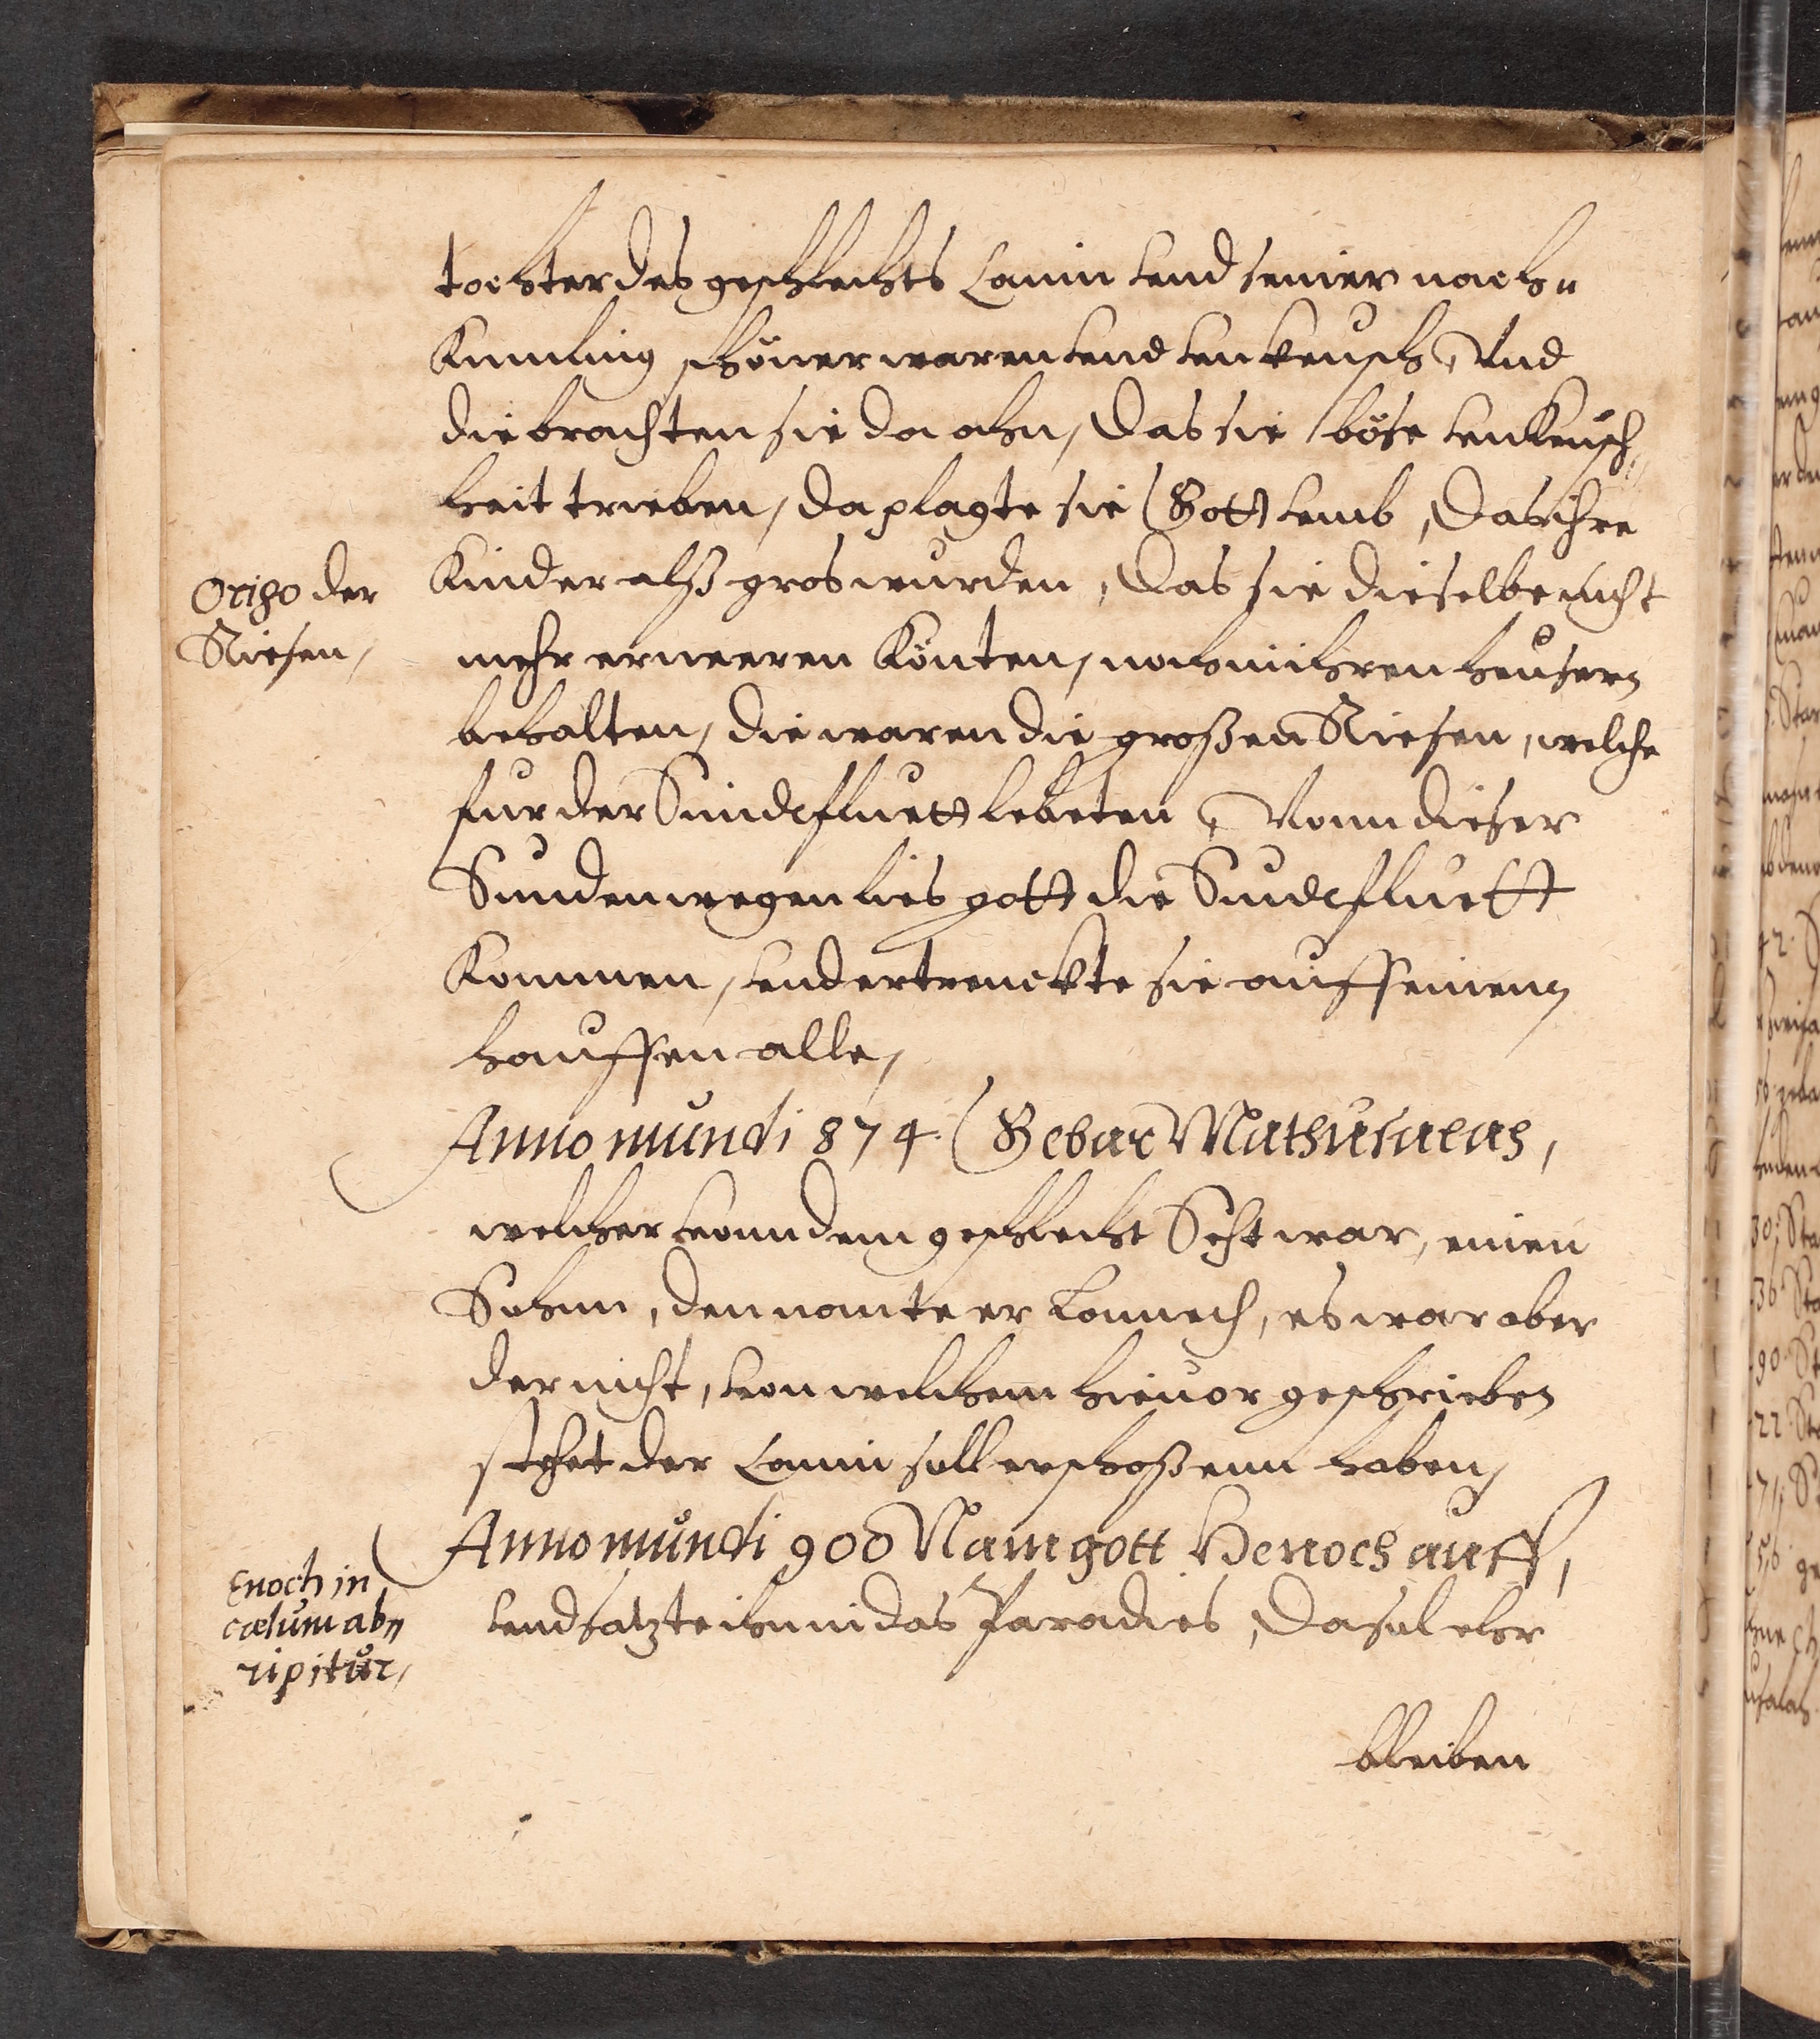 tochter des geschlechts Cainn vnd seiner nach„
Kumling schöner waren vnd vnkeusch, Vnd
die brachten sie da ahn, das sie böse vnkeusch„
heit trieben, da plagte sie Gott vmb, das ihre
Origo der
Riesen,
Kinder alß gros wurden, das sie dieselbe nicht
mehr erneeren Könten, noch in ihren heusern
behalten, die waren die großen Riesen, welche
fur der Sundtfluett lebeten, Vonn dieser
Sunden wegen lies gott die Sundtfluett
Kommen, vnd ertrenckte sie auff einenn
hauffen alle,
Anno mundi 874. Gebar Mathusalah,
welcher vonn dem geschlecht Seht war, einen
Sohnn, den nante er Lamech, es war aber
der nicht, von welchem hieuor geschrieben
stehet der Cainn soll erschoßenn haben,
Anno mundi 900 Nam gott Henoch auff,
Enoch in
cælum ab„
ripitur,
vnd satzte ihn in das Paradies, da sal ehr
bleiben